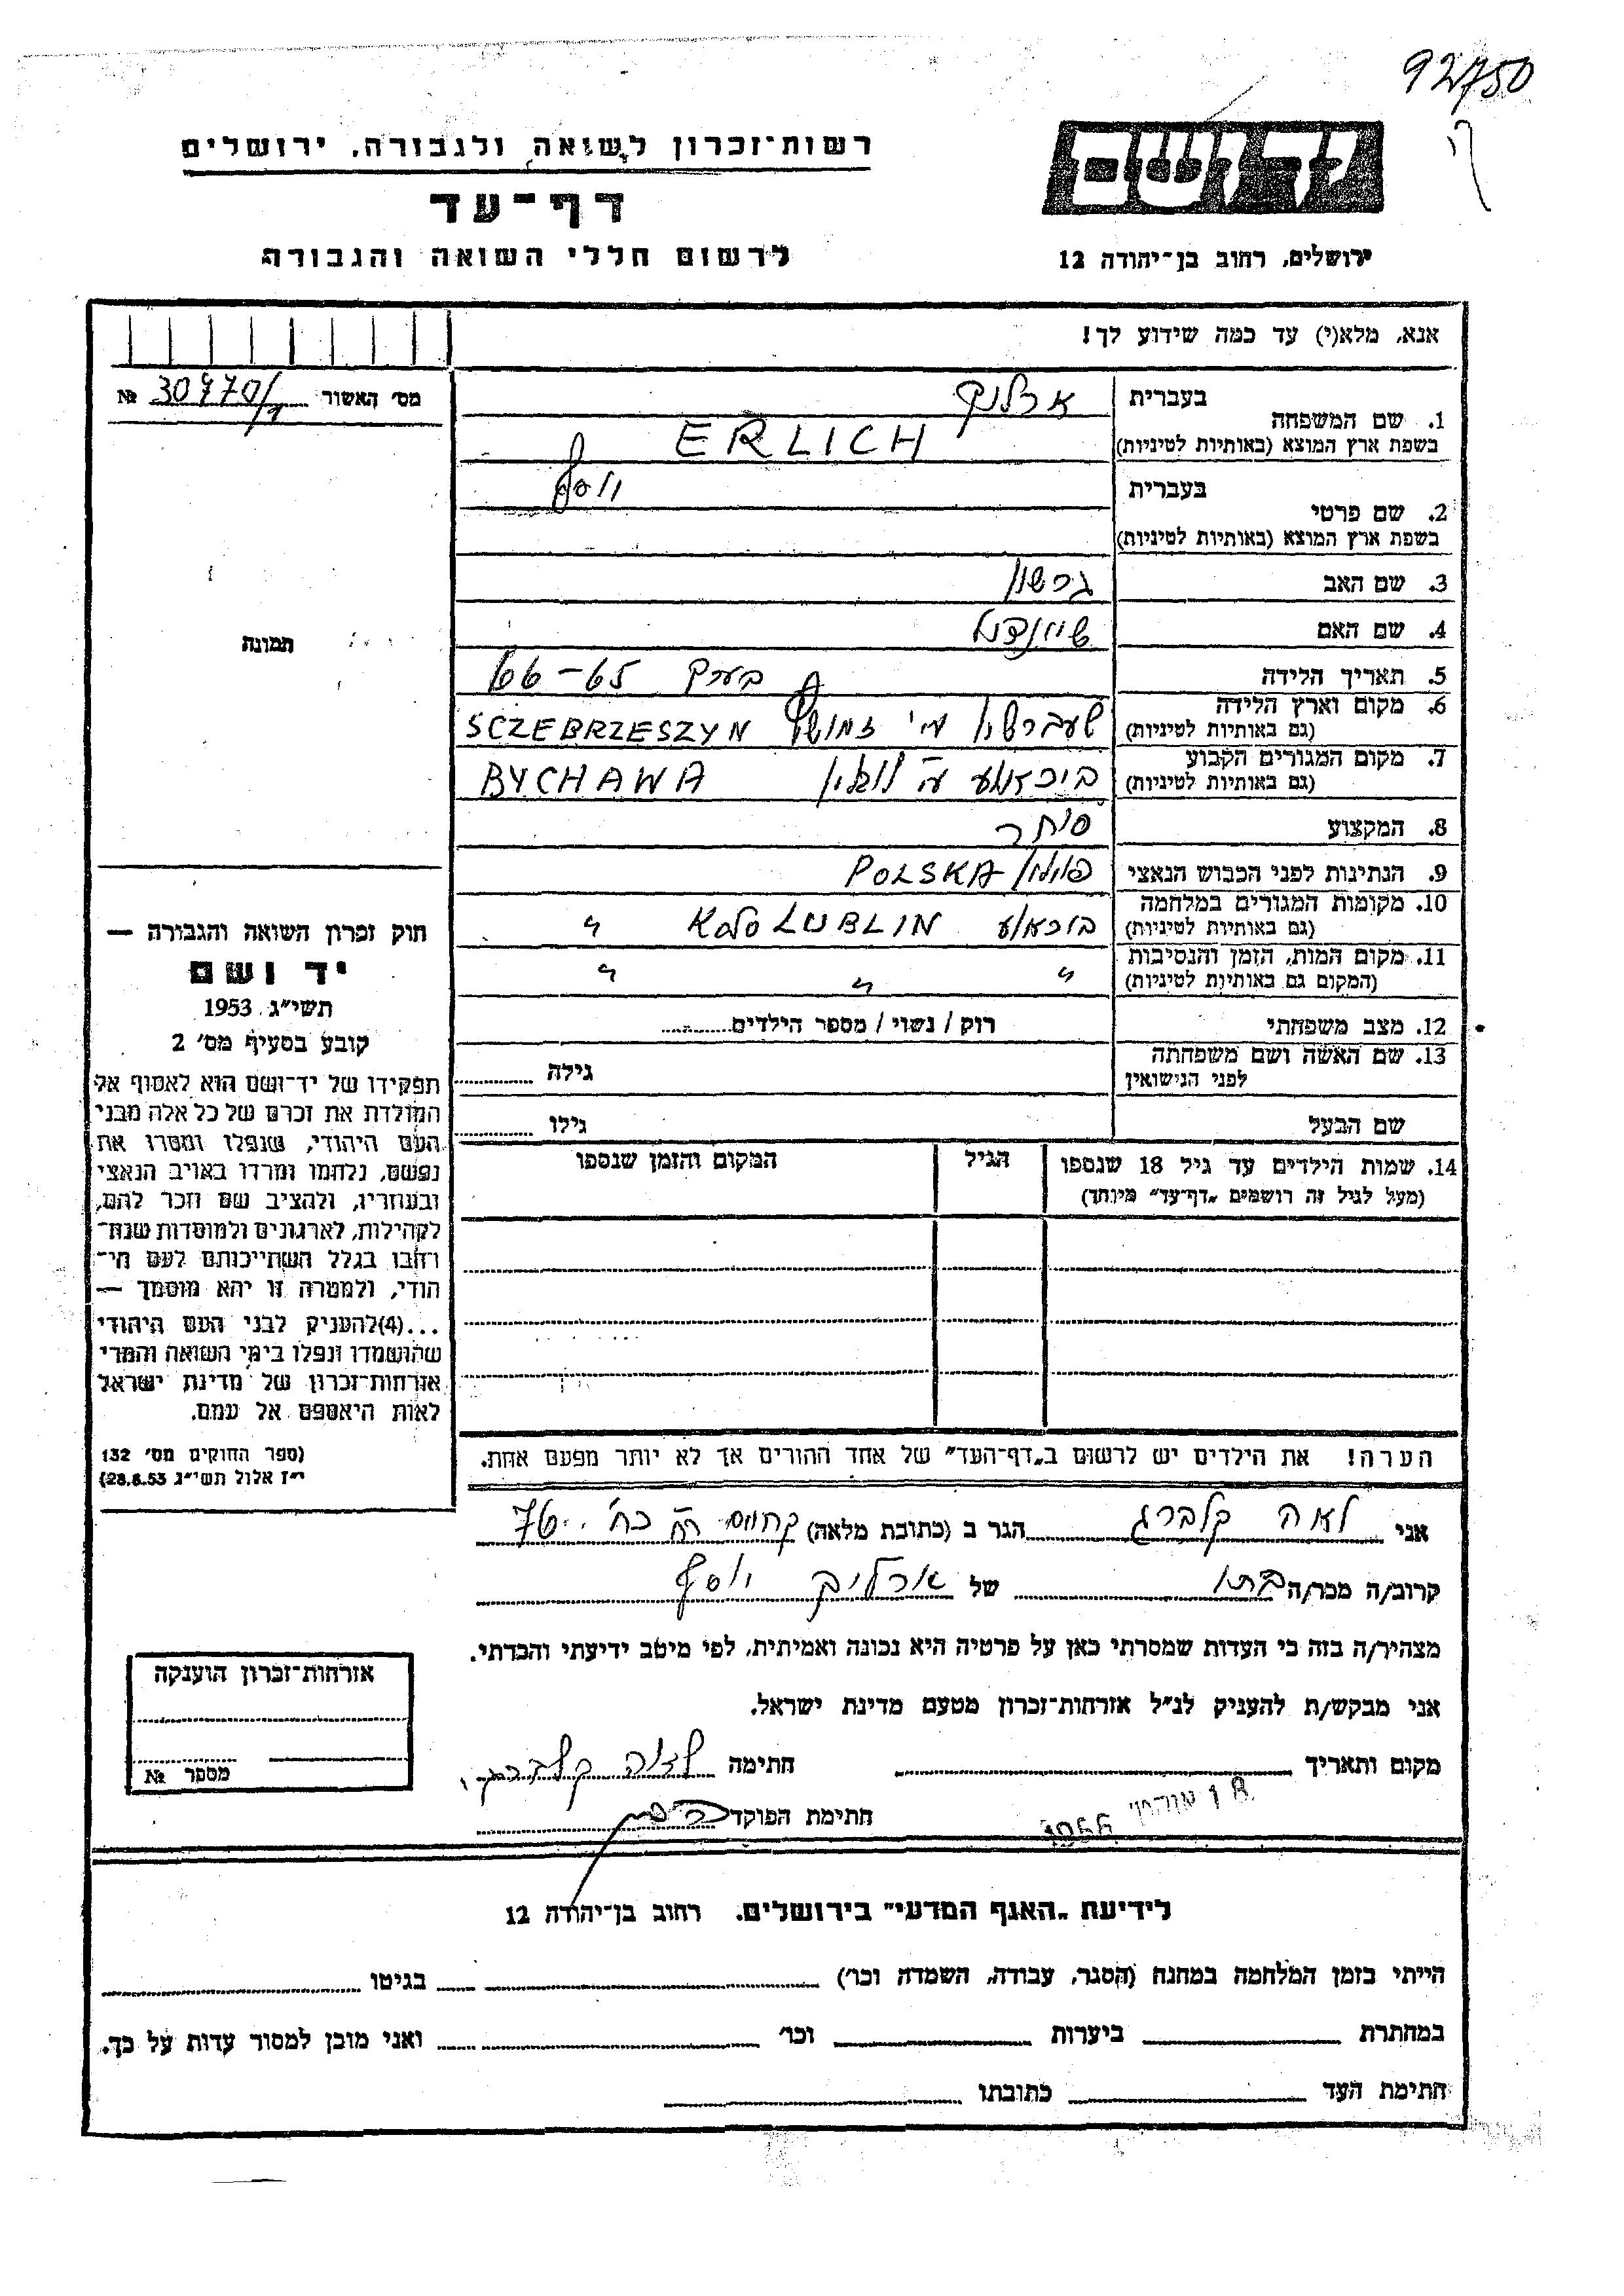 92750
רשות־זכרון לשואה ולגבורה, ירושלים
דף־עד
לרשום חללי השואה והגבורה
יד ושם
ירושלים, רחוב בן־יהודה 12
אנא, מלא(י) עד כמה שידוע לך!
מס׳ האשור № 30770/1
תמונה
1. שם המשפחה
בעברית ארליך
בשפת ארץ המוצא (באותיות לטיניות) ERLICH
2. שם פרטי
בעברית יוסף
בשפת ארץ המוצא (באותיות לטיניות)
3. שם האב גרשון
4. שם האם שיינדל
5. תאריך הלידה בערך 65-66
6. מקום וארץ הלידה
(גם באותיות לטיניות) שעברשין ע״י זמושץ SCZEBRZESZYN
7. מקום המגורים הקבוע
(גם באותיות לטיניות) לובלין BYCHAWA
8. המקצוע סוחר
9. הנתינות לפני הכבוש הנאצי פולין POLSKA
10. מקומות המגורים במלחמה
(גם באותיות לטיניות) KOŁO LUBLIN "
11. מקום המות, הזמן והנסיבות
(המקום גם באותיות לטיניות) " " "
12. מצב משפחתי רוק / נשוי / מספר הילדים
13. שם האשה ושם משפחתה
לפני הנישואין גילה
שם הבעל גילו
14. שמות הילדים עד גיל 18 שנספו
(מעל לגיל זה רושמים „דף־עד״ מיוחד)
הגיל
המקום והזמן שנספו
חוק זכרון השואה והגבורה —
יד ושם
תשי״ג 1953
קובע בסעיף מס׳ 2
תפקידו של יד־ושם הוא לאסוף אל
המולדת את זכרם של כל אלה מבני
העם היהודי, שנפלו ומסרו את
נפשם, נלחמו ומרדו באויב הנאצי
ובעוזריו, ולהציב שם וזכר להם,
לקהילות, לארגונים ולמוסדות שנח־
רחבו בגלל השתייכותם לעם הי־
הודי, ולמטרה זו יהא מוסמך —
...(4)להעניק לבני העם היהודי
שהושמדו ונפלו בימי השואה והמרי
אזרחות־זכרון של מדינת ישראל
לאות היאספם אל עמם.
(ספר החוקים מס׳ 132
י״ז אלול תשי״ג 28.8.53)
הערה! את הילדים יש לרשום ב„דף־העד״ של אחד ההורים אך לא יותר מפעם אחת.
אני לאה קלברג הגר ב (כתובת מלאה) 76
קרוב/ה מכר/ה בתו של ארליך יוסף
מצהיר/ה בזה כי העדות שמסרתי כאן על פרטיה היא נכונה ואמיתית, לפי מיטב ידיעתי והכרתי.
אני מבקש/ת להעניק לנ״ל אזרחות־זכרון מטעם מדינת ישראל.
מקום ותאריך חתימה לאה קלברג
חתימת הפוקד
אזרחות־זכרון הוענקה
מספר №
לידיעת „האגף המדעי״ בירושלים. רחוב בן־יהודה 12
הייתי בזמן המלחמה במחנה (הסגר, עבודה, השמדה וכו׳) בגיטו
במחתרת ביערות וכו׳ ואני מוכן למסור עדות על כך.
חתימת העד כתובתו